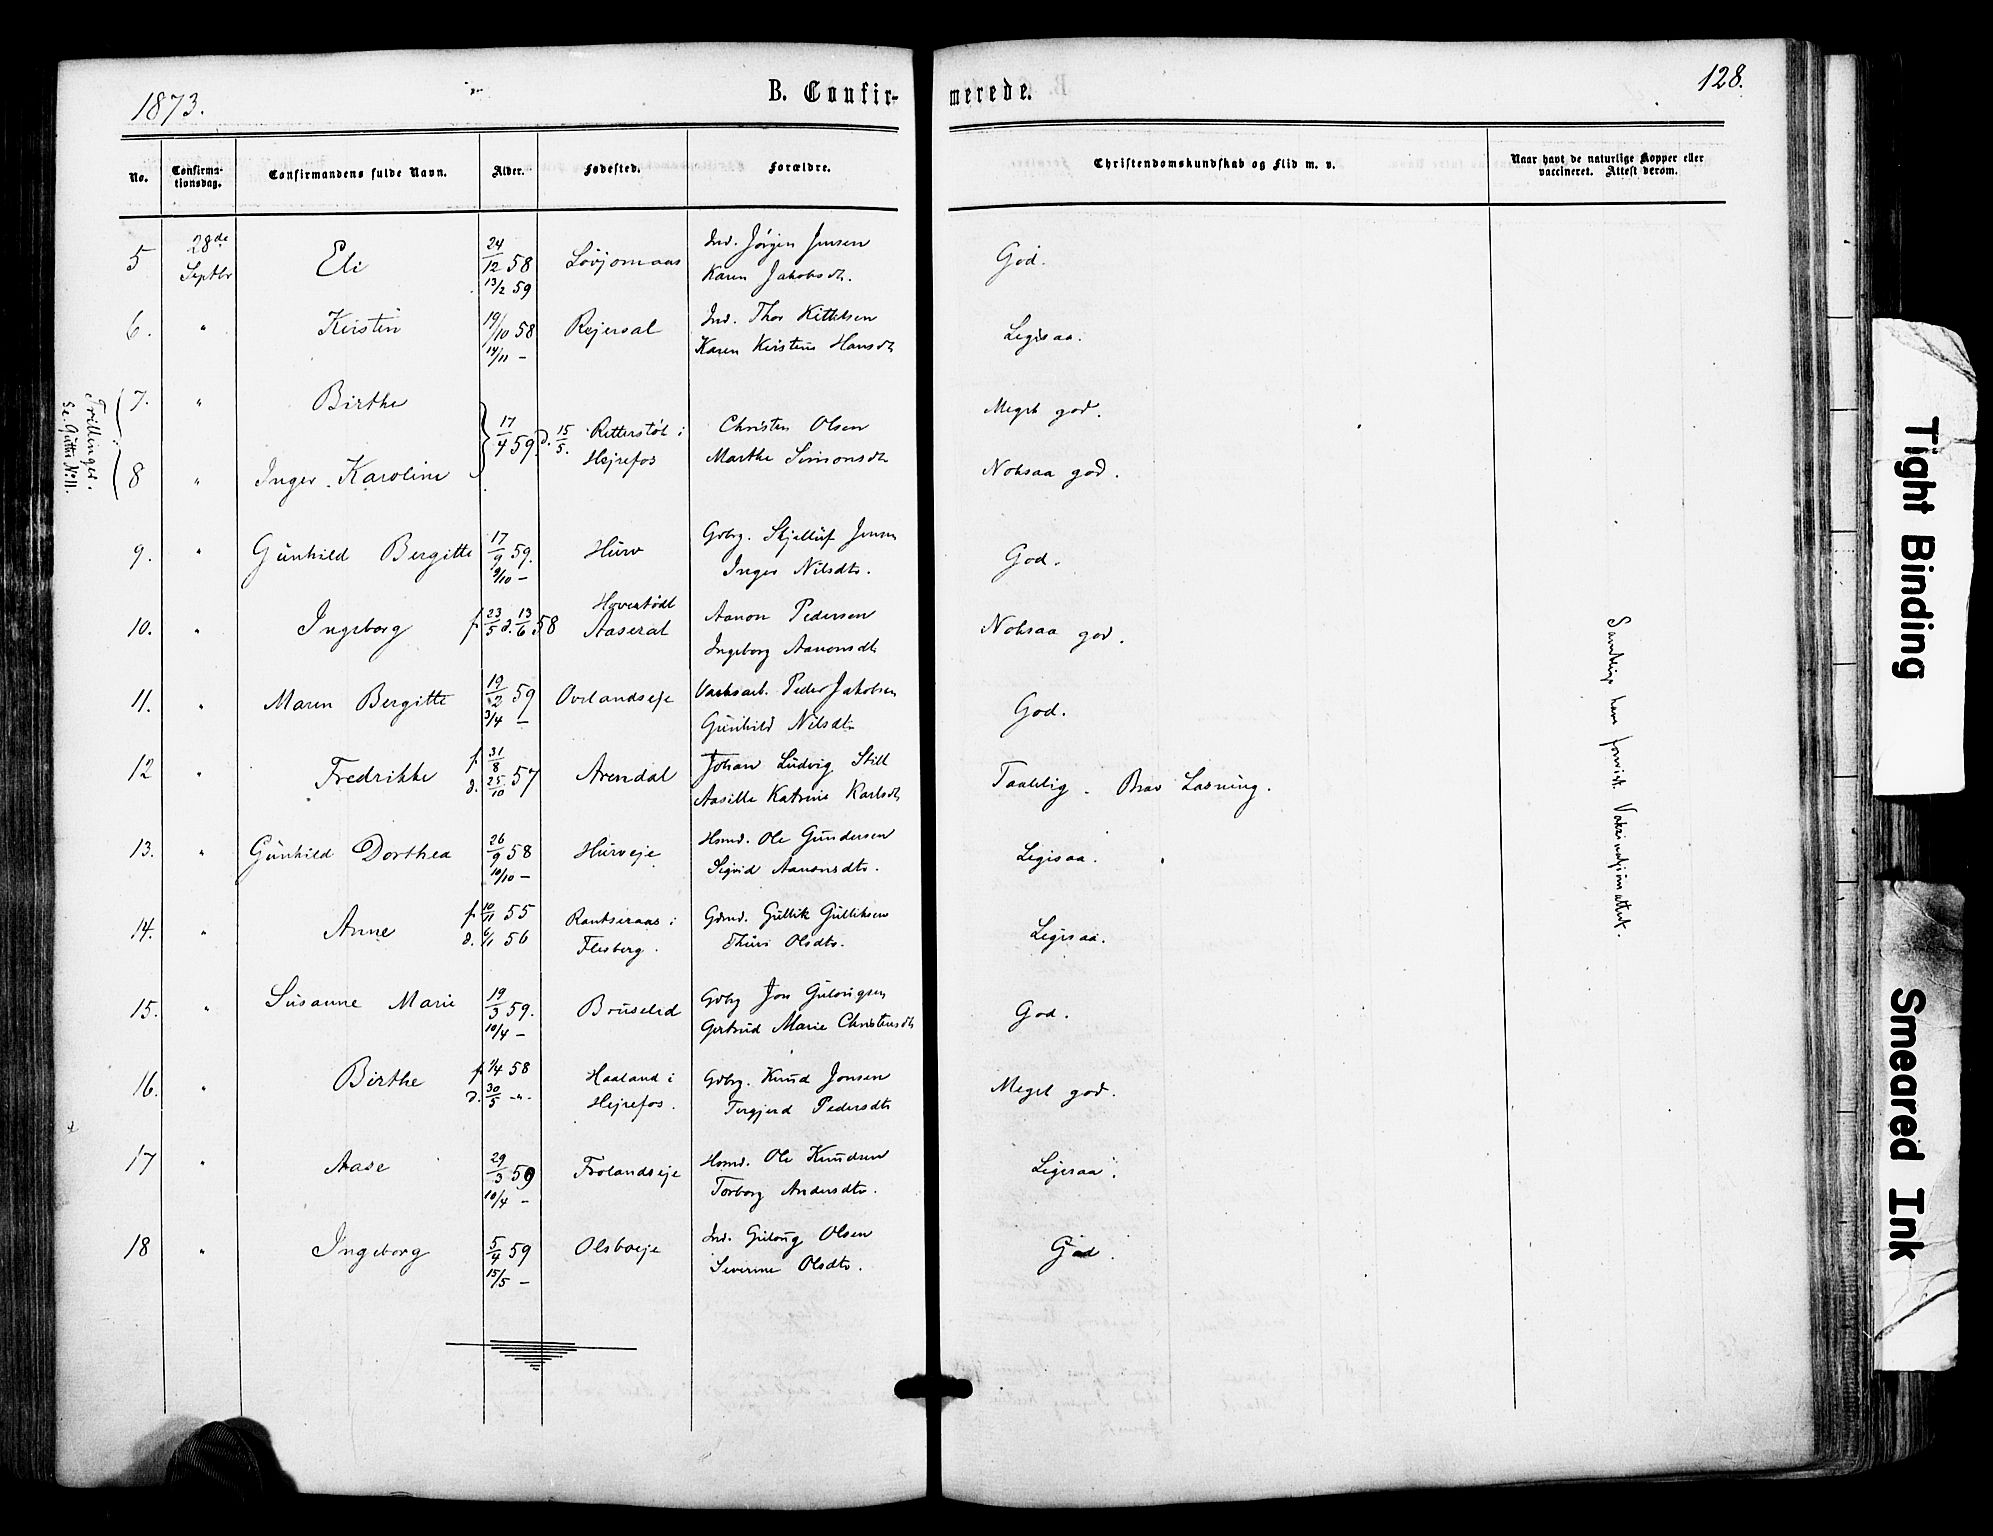 1873.
B. Confir-
merede.
128.
No.
Confirma-
tionsdag.
Confirmandens fulde Navn.
Alder.
Fødested.
Forældre.
Christendomskundskab og Flid m. v.
Naar havt de naturlige Kopper eller
vaccineret. Attest derom.
5 28de Septbr Eli 24/12 58 13/2 59 Løvjomaas Ind. Jørgen Jensen
Karen Jakobsdt. God.
6. " Kirstin 19/10 58 14/11 – Rejersal Ind. Thor Kittilsen
Karen Kirstine Hansdt. Ligesaa.
Trillinger.
Se. Gutter N. 11.
7. " Birthe Meget god.
17/4 59. d. 15/5. Retterstøl i Hejrefos Christen Olsen
Marthe Simonsdt
8 " Inger Karoline Noksaa god.
9. " Gunhild Bergitte 17/9 59. 9/10 – Hurv Gdbr. Skjelluf Jensen
Inger Nilsdtr. God.
10. " Ingeborg f. 23/5 d. 13/6 58 Hovestødt
Aaseral Aanon Pedersen
Ingeborg Aanonsdt. Noksaa god.
11. " Maren Bergitte 19/2 59 3/4 – Ovelandseje Værksarb. Peder Jakobsen
Gunhild Nilsdtr God.
12 " Fredrikke f. 31/8 d. 25/10 57 Arendal Johan Ludvig Still
Aasille Katrine Karlsdt. Taalelig. Brav Læsning.
13. " Gunhild Dorthea 26/9 58 10/10 – Hurveje Hsmd. Ole Gundersen
Sigrid Aanonsdtr. Ligesaa.
14. " Anne f. 10/11 55 d. 6/1 56 i
Flesberg. Gdmd. Gullik Gulliksen
Thuri Olsdtr. Ligesaa.
15. " Susanne Marie 19/3 59. 10/4 – Bruselid Gdbr Jon Gulougsen
Gertrud Marie Christensdt God.
16. " Birthe f. 1/4 58 d. 30/5 –"– Haaland i
Hejrefos. Gdbr. Knud Jonsen
Tergjerd Pedersdtr Meget god.
17 " Aase 29/3 59 10/4 – Frolandseje Hsmd. Ole Knudsen
Torborg Andersdtr. Ligesaa.
18 " Ingeborg 5/4 59 15/5 – Olsbueje Ind. Guloug Olsen
Severine Olsdtr. God.
Samtlige have forevist Vakcinationsattest.
Tight Binding
Smeared Ink